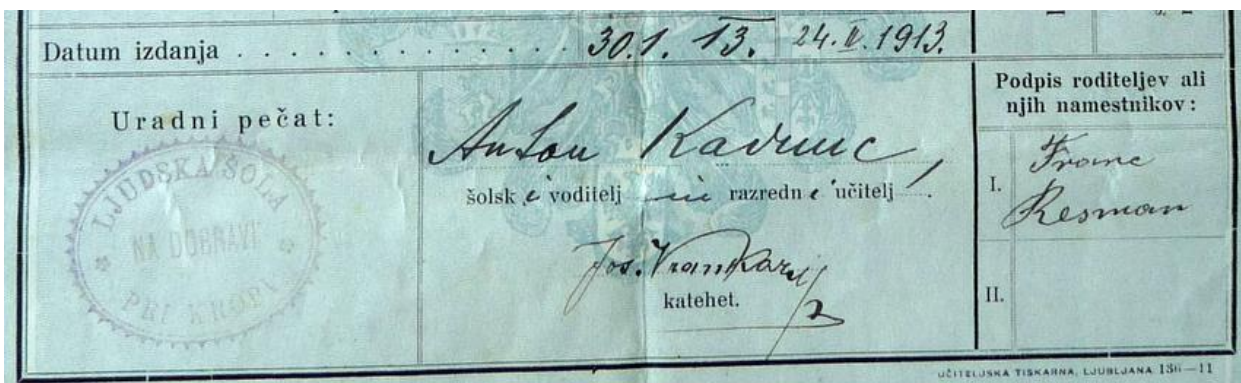 Datum izdanja . . . . . . . . . . . . . . . 30.1. 13. 24.V.1913.
Uradni pečat:
LJUDSKA ŠOLA
NA DOBRAVI
PRI KROPI
Anton Kadunc,
šolski voditelj in razredni učitelj.
Jos. Vrankar
katehet.
Podpis roditeljev ali
njih namestnikov:
I. Franc
Resman
II.
UČITELJSKA TISKARNA, LJUBLJANA 136—11